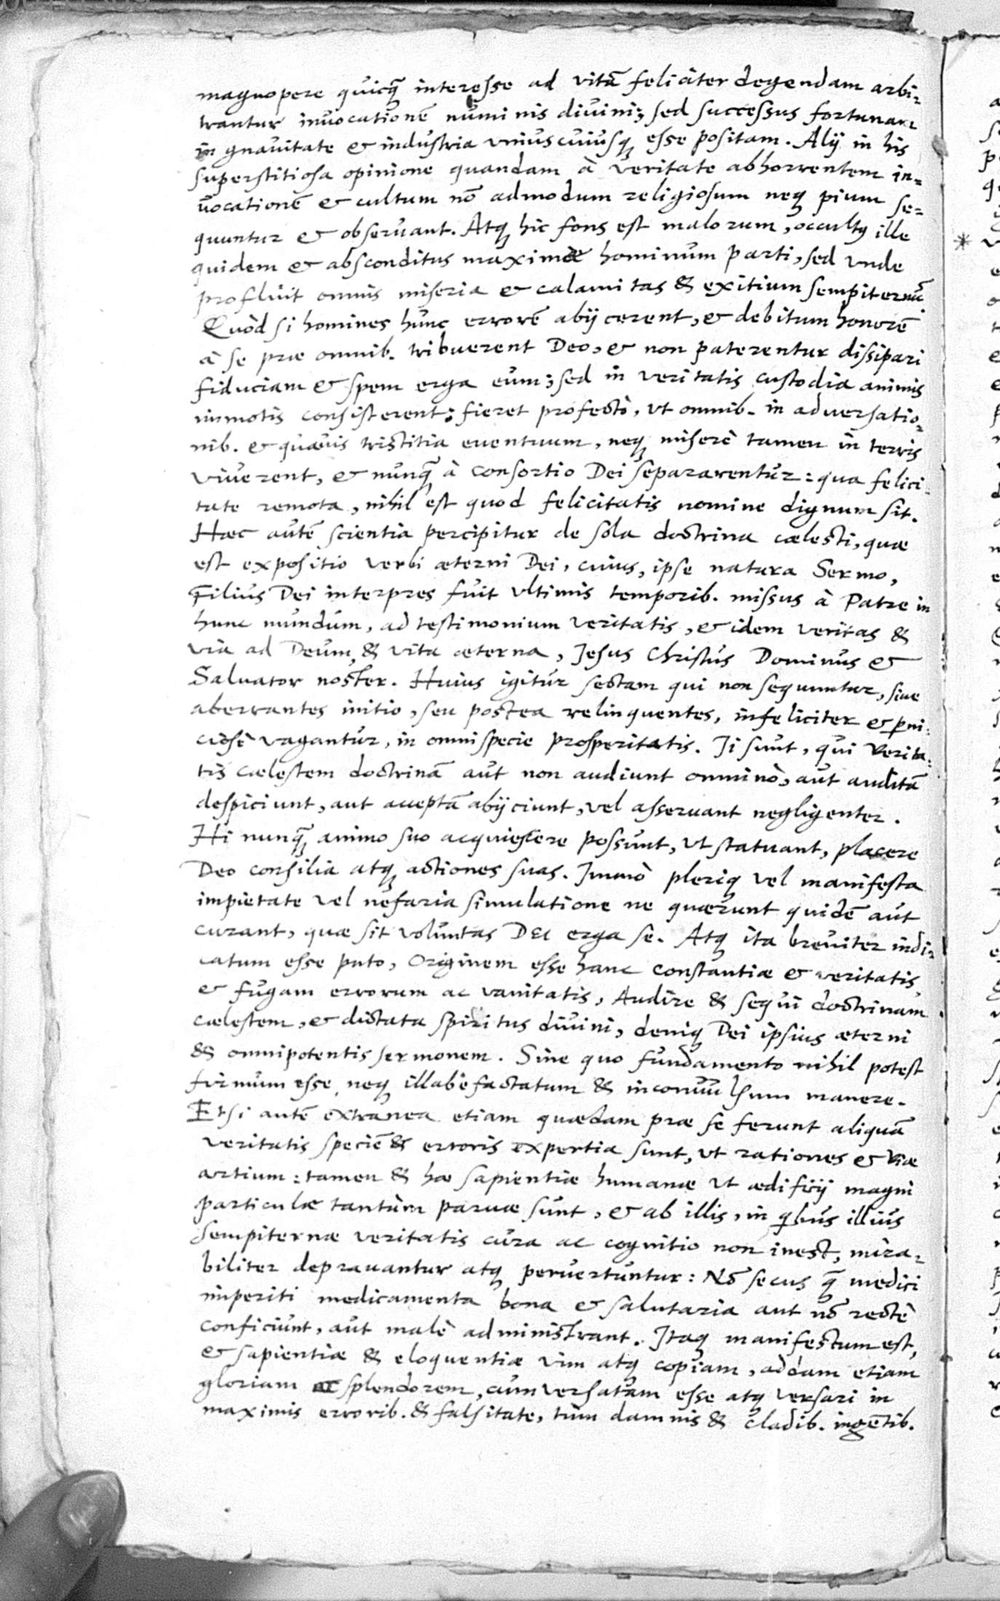 magnopere quicq̃ interesse ad vitā feliciter degendam arbi-
trantur invocationē numinis divini; sed successus fortunari
in gnavitate & industria uniuscuiusq; esse positam. Alij in his
superstitiosa opinione quandam à veritate abhorrentem in-
vocationē & cultum nō admodum religiosum neq; pium se-
quuntur & observant. Atq; hic fons est malorum, occultus ille
quidem & absconditus maximae hominum parti, sed unde
profluit omnis miseria & calamitas & exitium sempiternū.
Quòd si homines hunc errorē abijcerent, & debitum honorē
à se prae omnib. tribuerent Deo, & non paterentur dissipari
fiduciam & spem erga eum; sed in veritatis custodia animis
immotis consisterent; fieret profectò, ut omnib. in adversatio-
nib. & quaevis tristitia eventuum, neq; miserè tamen in terris
viverent, & nunq̃ à consortio Dei separarentur: qua felici-
tate remota, nihil est quod felicitatis nomine dignum sit.
Haec autē scientia percipitur de sola doctrina caelesti, quae
est expositio verbi aeterni Dei, cuius, ipse natura Sermo,
Filius Dei interpres fuit ultimis temporib. missus à Patre in
hunc mundum, ad testimonium veritatis, & idem veritas &
via ad Deum, & vita aeterna, Jesus Christus Dominus &
Salvator noster. Huius igitur sectam qui non sequuntur, sive
aberrantes initio, seu postea relinquentes, infeliciter & p̱ni-
ciosè vagantur, in omni specie prosperitatis. Ji sunt, qui verita-
tis caelestem doctrinā aut non audiunt omninò, aut auditā
despiciunt, aut acceptā abijciunt, vel asservant negligenter.
Hi nunq̃ animo suo acquiescere possunt, ut statuant, placere
Deo consilia atq; actiones suas. Jmmò pleriq; vel manifesta
impietate vel nefaria simulatione ne quaerunt quidē aut
curant, quae sit voluntas DEI erga se. Atq; ita breviter indi-
catum esse puto, Originem esse hanc constantiae & veritatis
& fugam errorum ac vanitatis, Audire & sequi doctrinam
caelestem, & dictata spiritus divini, deniq; Dei ipsius aeterni
& omnipotentis sermonem. Sine quo fundamento nihil potest
firmum esse, neq; illabefactatum & inconvulsum manere.
Etsi autē extranea etiam quaedam prae se ferunt aliquā
veritatis speciē & erroris expertia sunt, ut rationes & viae
artium: tamen & hae sapientiae humanae ut aedificij magni
particulae tantùm parvae sunt, & ab illis, in q̃bus illius
sempiternae veritatis cura ac cognitio non inest, mira-
biliter depravantur atq; pervertuntur: Nō secus q̃ medici
imperiti medicamenta bona & salutaria aut nō rectè
conficiunt, aut malè administrant. Jtaq; manifestum est,
& sapientiae & eloquentiae vim atq; copiam, addam etiam
gloriam splendorem, cum versatam esse atq; versari in
maximis errorib. & falsitate, tùm damnis & cladib. ingētib.